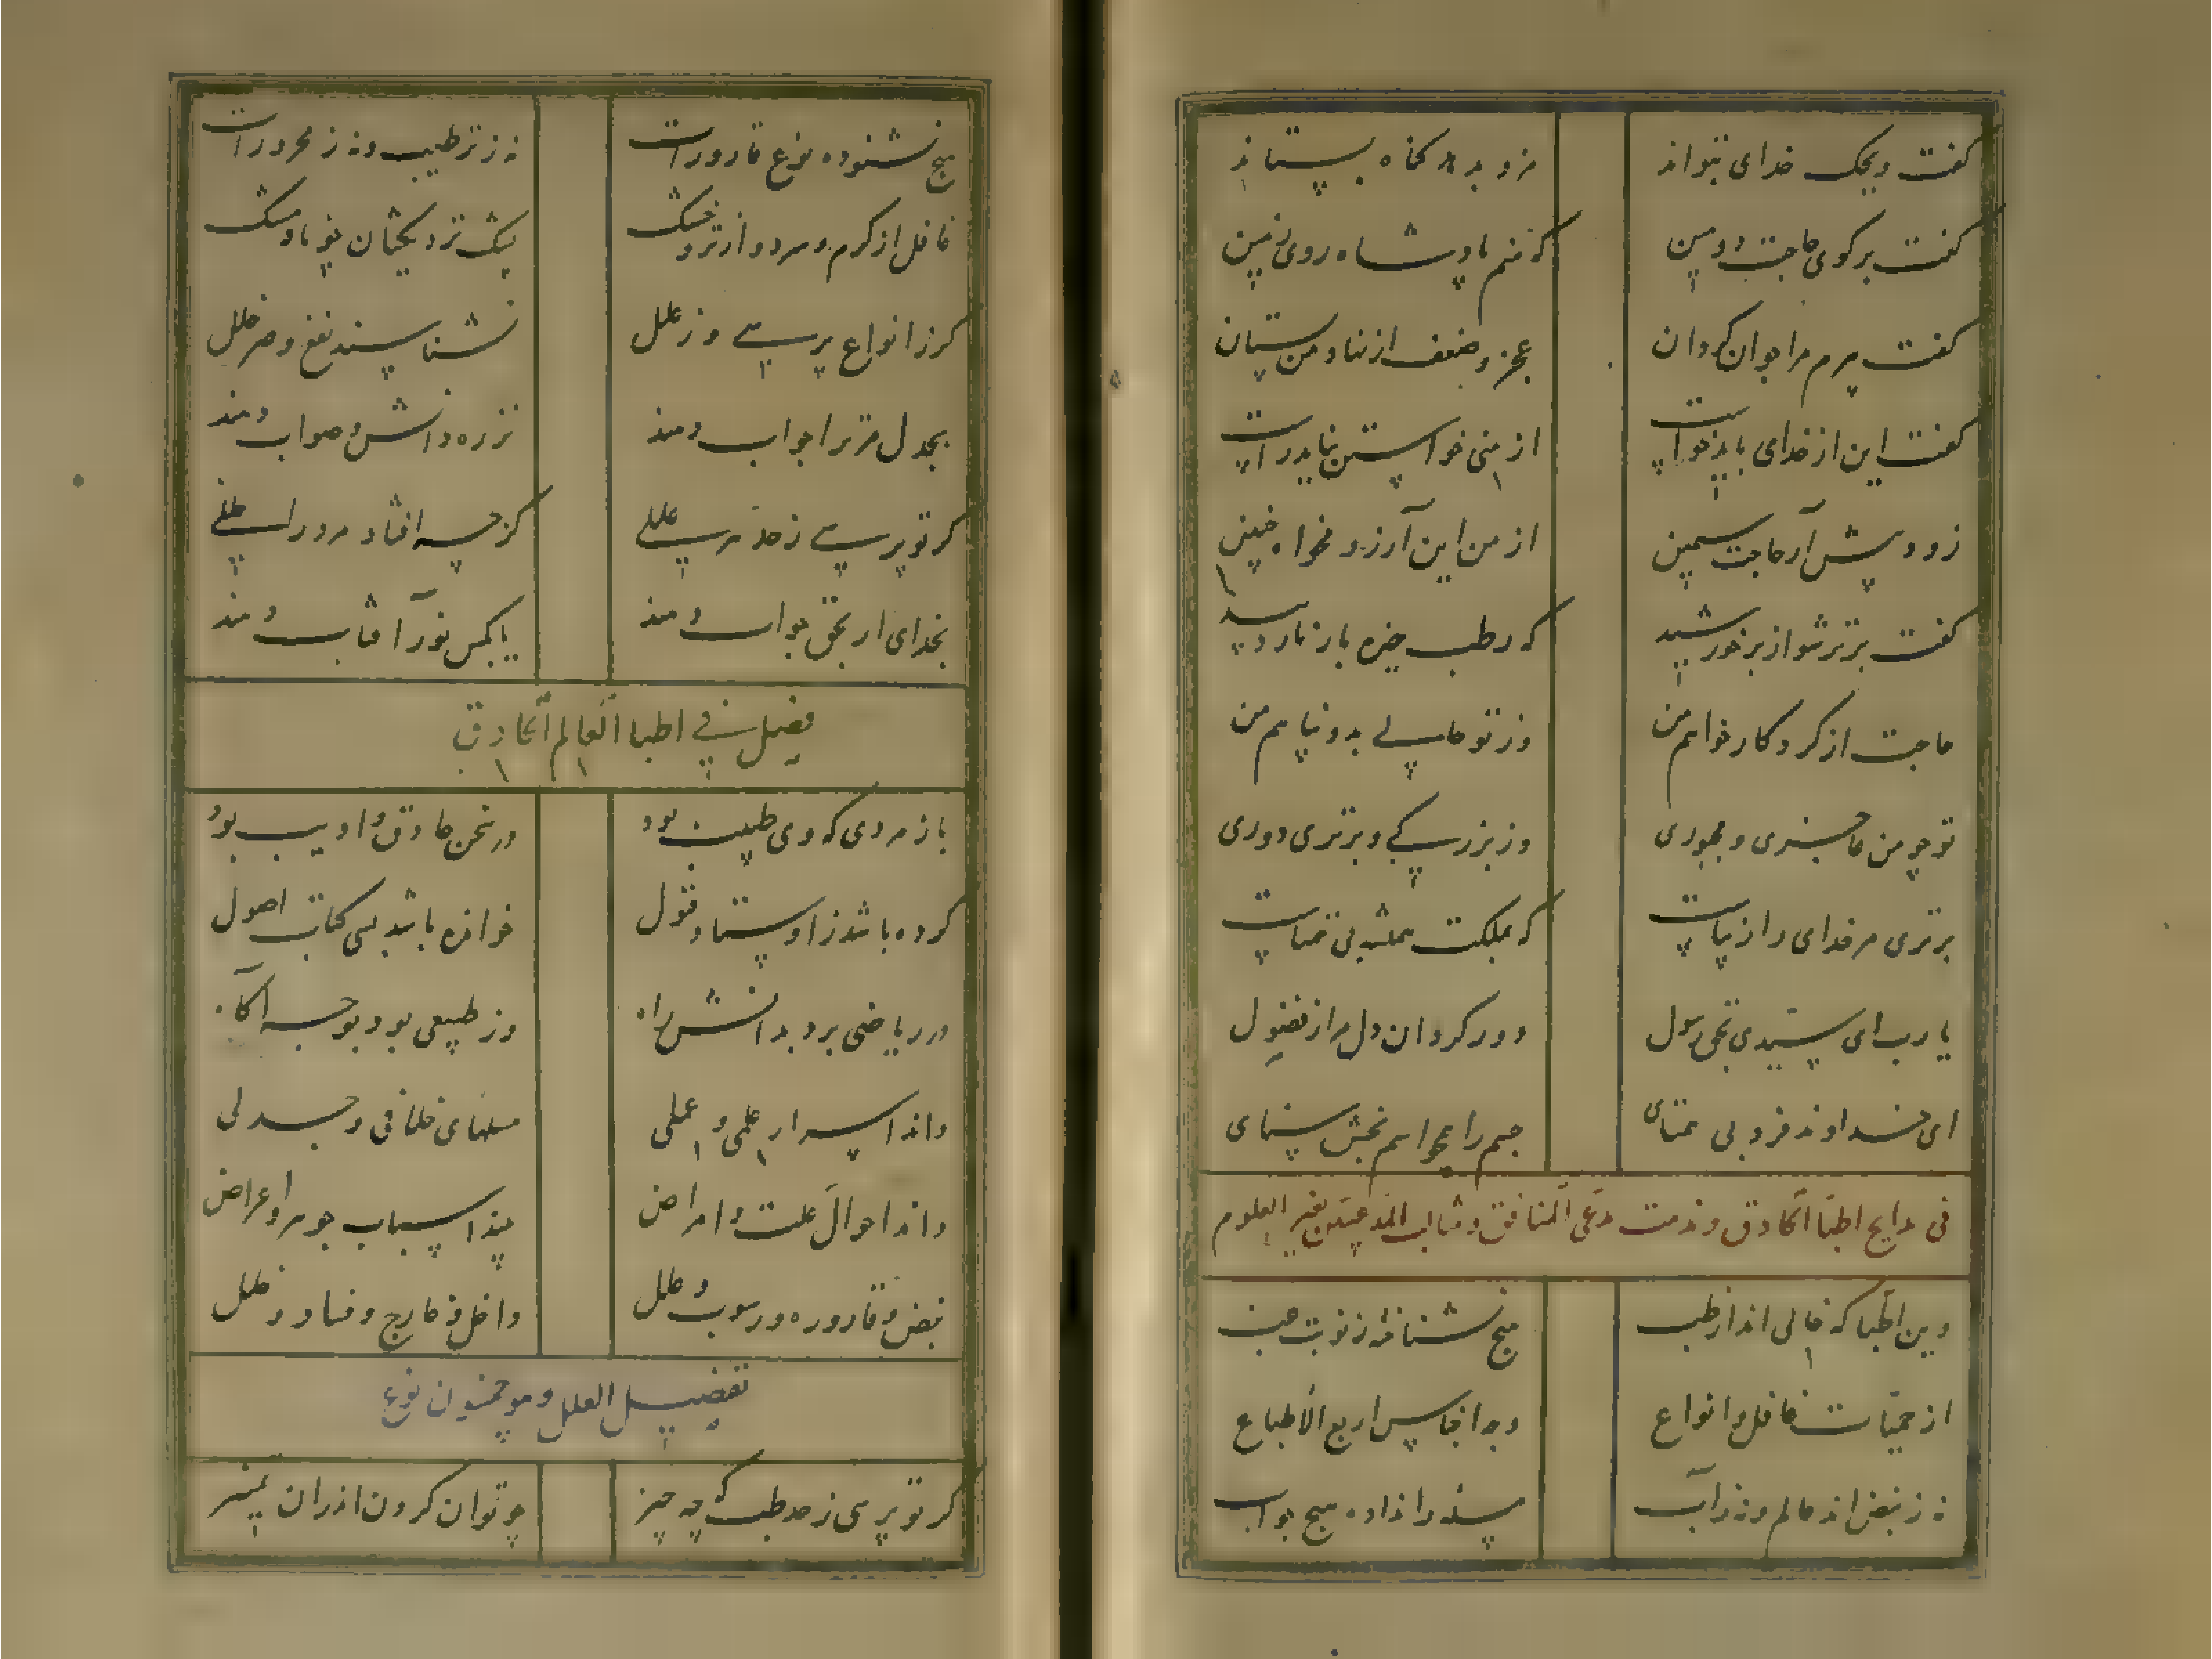 گفت ویحک خدای بتواند مزد بدهد گناه بستاند
گفت برگوی حاجت دومین گفت منم پادشاه روی زمین
گفت پیرم مرا جوان گردان عجز و ضعف از نهاد من بستان
گفت این از خدای باید خواست از منی خواستن نباید راست
زود پیش آر حاجت سیمین از من این آرزو مخواه چنین
گفت برتر شو از بر خورشید که رطب خیره بار نارد بید
حاجت از کردگار خواهم من وز تو حاصل بدو پناهم من
تو چو من عاجزی و مجبوری وز بزرگی و برتری دوری
برتری مر خدای را زیباست که بملکت همیشه بی همتاست
یا رب ای سیدی بحق رسول دور گردان دل مرا ز فضول
ای خداوند فرد بی همتای جسم را همچو اسم بخش سنای
فی مدایح اطبا الحاذق و مذمت مدعی المنافق و مثالب المدعین بغیر العلوم
وین اطبا که خالی‌اند از طب هیچ نشناخته ز نوبت حب
از حمیات غافل و انواع وجه اجناس اربع الاطباع
نه ز نبض اند عالم و نه ز آب بنده را نداده هیچ جواب
هیچ نشنوده نوع قارورات نه ز ترطیب و نه ز محرورات
غافل از گرم و سرد و از تر و خشک پشک نزدیکشان چو باد و مشک
گر ز انواع پرسی وز علل نشناسند نفع و ضر خلل
بجدل مر ترا جواب دهند نز ره دانش و صواب دهند
گر تو پرسی ز حد هر عللی کز چه افتاد مرورا خللی
بخدای ار بحق جواب دهند یا بکس نور آفتاب دهند
فصل فی اطبا العالم الحاذق
باز مردی که وی طبیب بود در سخن حاذق و ادیب بود
کرده باشد ز اوستاد قبول خوانده باشد بسی کتاب اصول
در ریاضی برد بدانش راه وز طبیعی بود بوجه آگاه
داند اسرار علمی و عملی مسلهای خلافی و جدلی
داند احوال علت و امراض بیند اسباب جوهر و اعراض
نبض و قاروره و رسوب و علل داخل و خارج و فساد و خلل
تفضیل العلل و هو خمسون نوع
گر تو پرسی ز حد طب که چه چیز چو توان کردن اندران تمییز